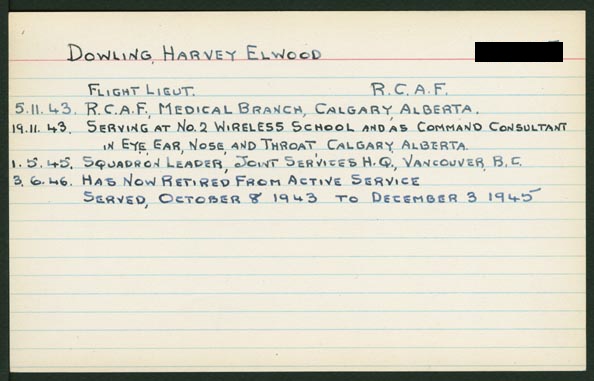 DOWLING, HARVEY ELWOOD
FLIGHT LIEUT. R.C.A.F.
5.11.43. R.C.A.F., MEDICAL BRANCH, CALGARY, ALBERTA.
19.11.43. SERVING AT NO.2 WIRELESS SCHOOL AND AS COMMAND CONSULTANT
IN EYE, EAR, NOSE AND THROAT CALGARY, ALBERTA.
1.5.45. SQUADRON LEADER, JOINT SERVICES H.Q., VANCOUVER, B.C.
3.6.46. HAS NOW RETIRED FROM ACTIVE SERVICE
SERVED, OCTOBER 8 1943 TO DECEMBER 3 1945